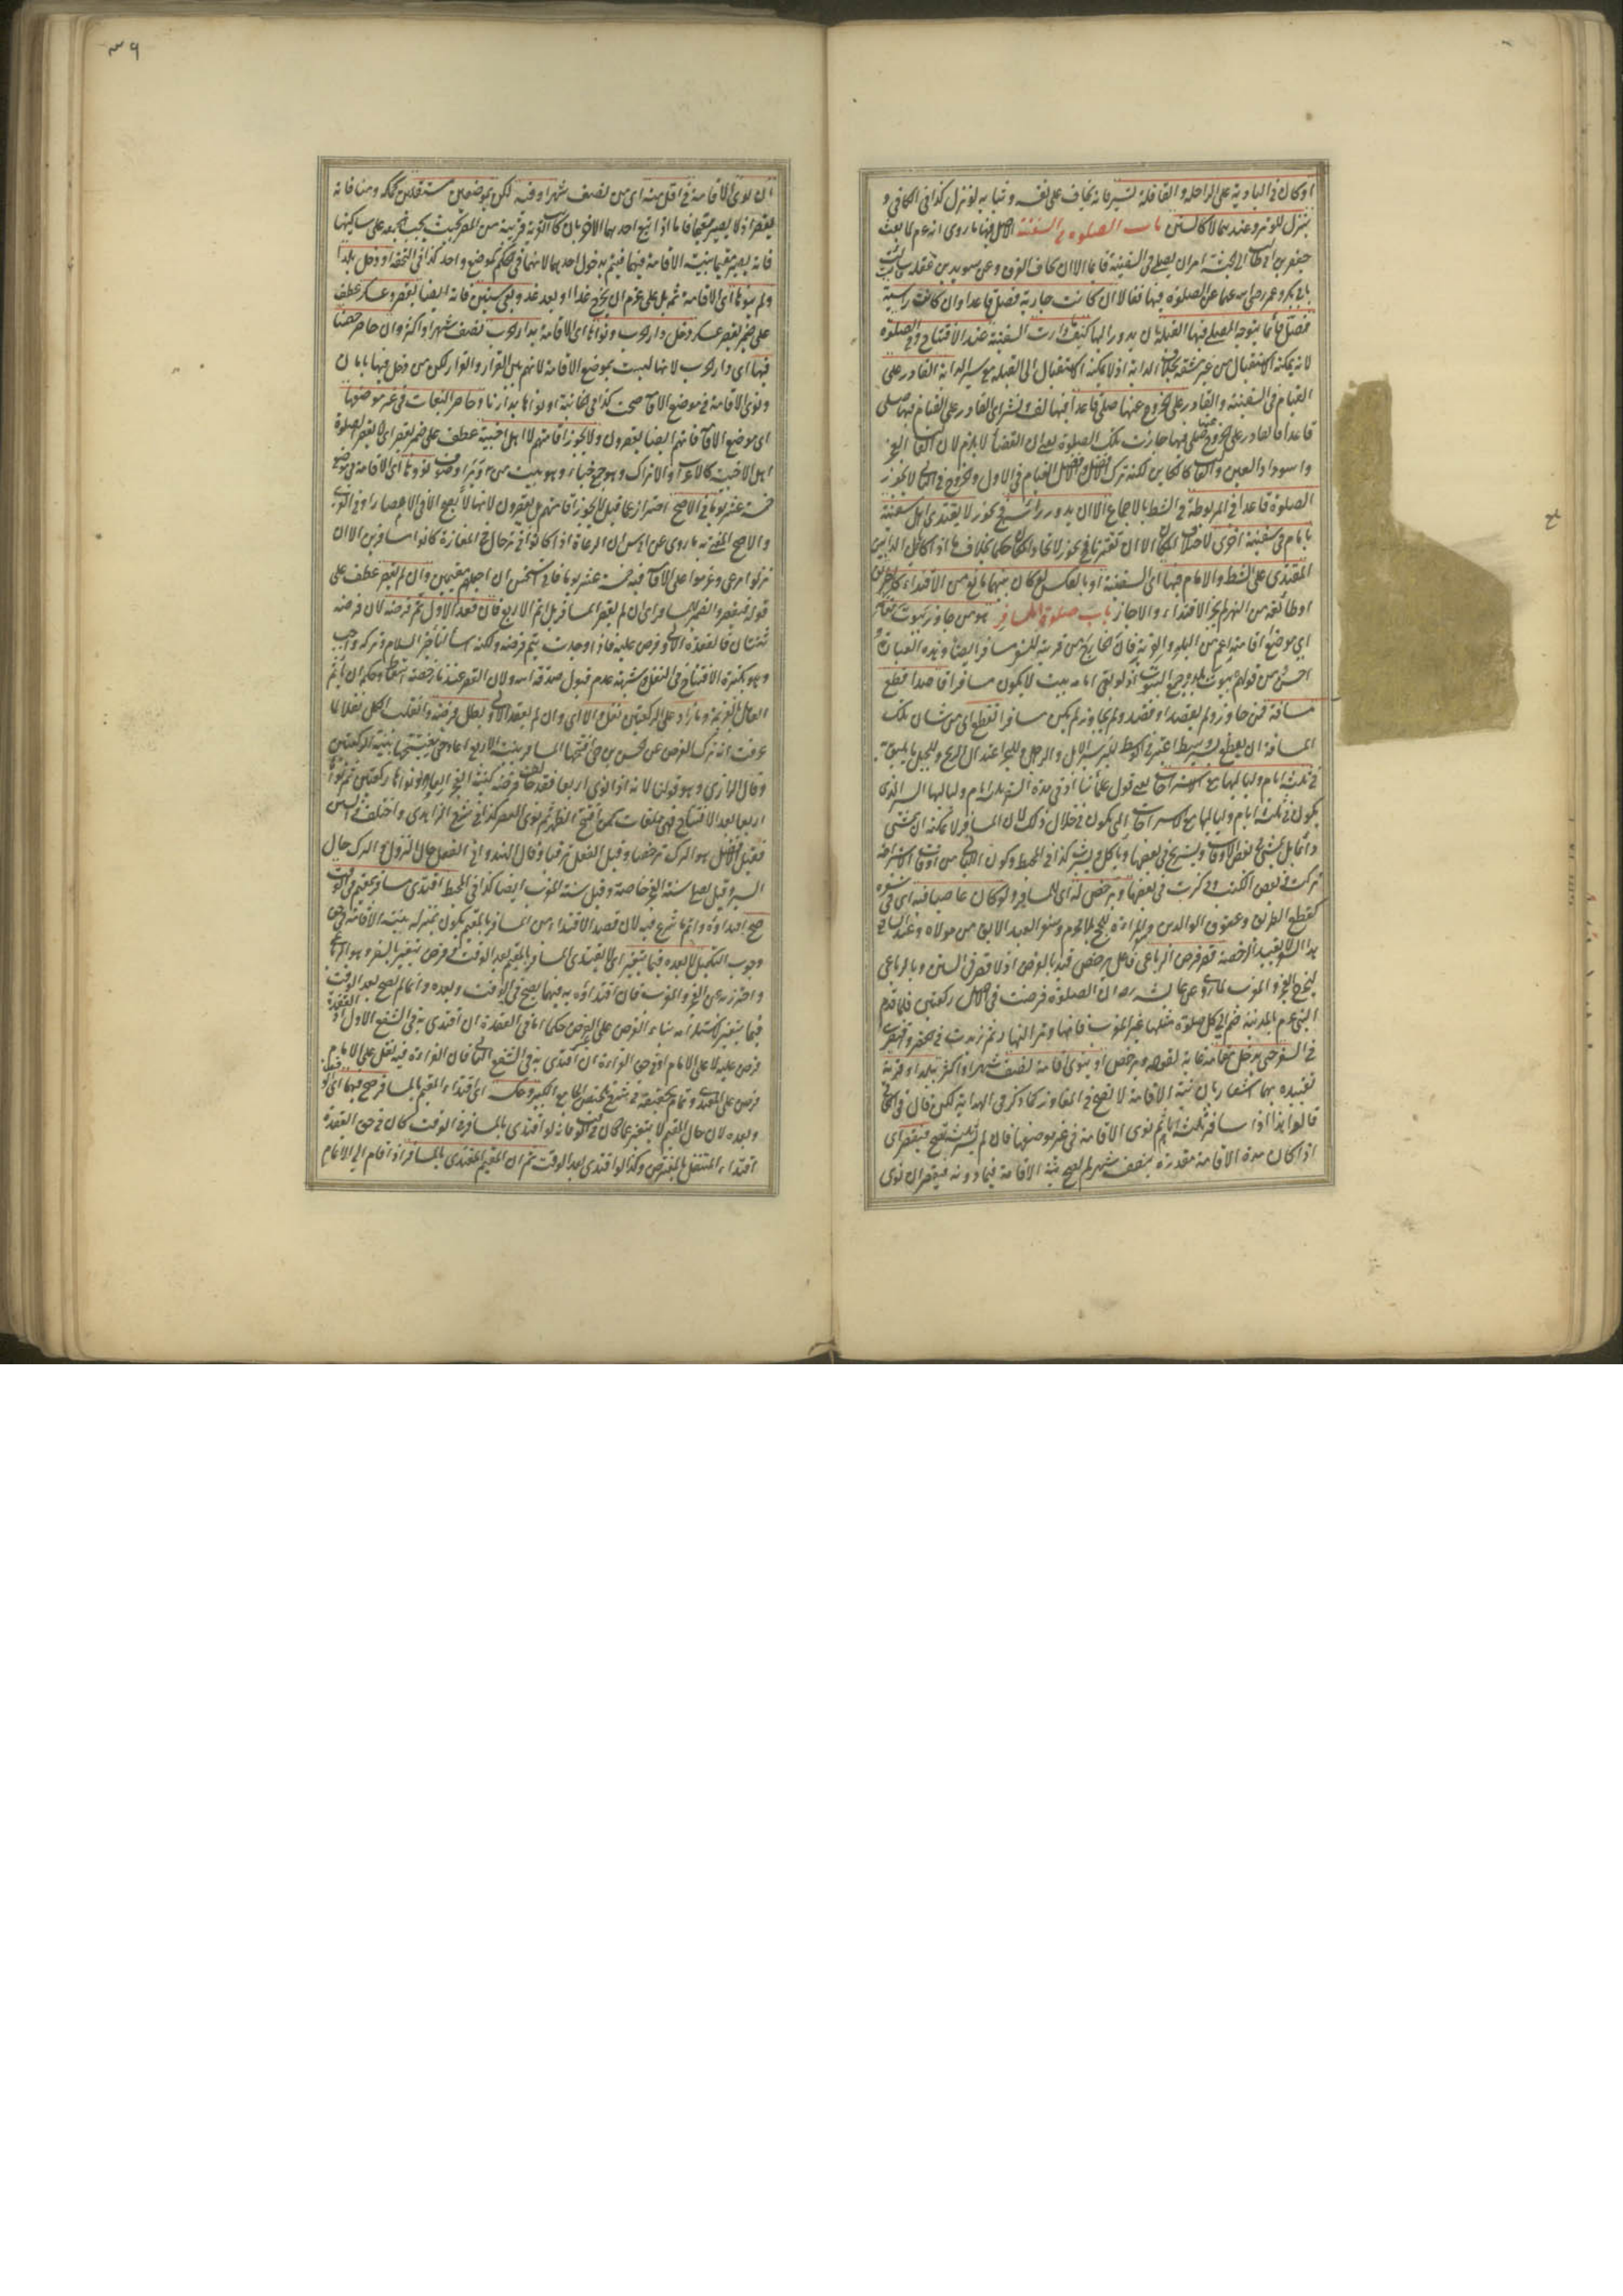 او كان في البادية على الراحلة والقافلة تسير فانه يخاف على نفسه وثيابه لو نزل كذا في الكافي و
ينزل للوتر وعندهما لا كالسنن باب الصلوة في السفينة الاصل فيها ما روى انه عم لما بعث
جعفر بن ابي طالب الى الحبشة امره ان يصلي في السفينة قائما الا ان يخاف الغرق وعن سويد بن غفلة سالت
ابا بكر وعمر رضي الله عنهما عن الصلوة فيها فقالا ان كانت جارية فصل قاعدا وان كانت راسية
فصل قائما يتوجه المصلي فيها القبلة بان يدور اليها كيف دارت السفينة عند الافتتاح وفي الصلوة
لانه يمكنه الاستقبال من غير مشقة بخلاف الدابة اذ لا يمكنه الاستقبال الى القبلة مع سير الدابة القادر على
القيام في السفينة والقادر على الخروج عنها صلى قاعدا فيها لف ونشر اي القادر على القيام فيها صلى
قاعدا والقادر على الخروج عنها صلى فيها جازت تلك الصلوة يعني ان القضاء لا يلزم لان الغالب العجز
واسوداد العين والغالب كالكائن لكنه ترك الافضل والافضل القيام في الاول والخروج في الثاني لا يجوز
الصلوة قاعدا في المربوطة في الشط بالاجماع الا ان يدور رأسه فيجوز لا يقتدي اهل سفينة
بامام في سفينة اخرى لاختلاف المكان الا ان تقترنا فيجوز لاتحاد المكان حكما بخلاف ما اذا كانا على الدابتين
المقتدي على الشط والامام فيها اي السفينة او بالعكس لو كان بينهما مانع من الاقتداء كالطريق
او طائفة من النهر لم يجز الاقتداء والا جاز باب صلوة المسافر هو من جاوز بيوت مقامه
اي موضع اقامته اعم من البلد والقرية فان الخارج من قرية للسفر مسافر ايضا وهذه العبارة
احسن من قولهم بيوت بلده وجمع البيوت اذ لو بقي امامه بيت لا يكون مسافرا قاصدا قطع
مسافة فمن جاوز ولم يقصد او قصد ولم يجاوز لم يكن مسافرا تقطع اي من شان تلك
المسافة ان يقطع بسير وسط اعتبر في الوسط للبر سير الابل والرجل وللبحر اعتدال الريح وللجبل ما يليق به
في ثلثة ايام ولياليها مع الاستراحات يعني قول علمائنا ادنى مدة السفر ثلثة ايام ولياليها السير الذي
يكون في ثلثة ايام ولياليها مع الاستراحات التي يكون في خلال ذلك لان المسافر لا يمكنه ان يمشي
دائما بل يمشي في بعض الاوقات ويستريح في بعضها وياكل ويشرب كذا في المحيط وكون الليالي من اوقات الاستراحة
تركت في بعض الكتب وذكرت في بعضها ويرخص له اي للمسافر ولو كان عاصيا فيه اي في سفره
كقطع الطريق وعقوق الوالدين وسفر المراة للحج بلا محرم وسفر العبد الابق من مولاه وعند الشافعي
هذا السفر لا يفيد الرخصة قصر فرض الرباعي فاعل يرخص قيد بالفرض اذ لا قصر في السنن وبالرباعي
ليخرج الفجر والمغرب لما روي عن عائشة رضه ان الصلوة فرضت في الاصل ركعتين فلما قدم
النبي عم المدينة ضم الى كل صلوة مثلها غير المغرب فانها وتر النهار ثم زيدت في الحضر واقرت
في السفر حتى يدخل مقامه غاية لقوله ويرخص او ينوي اقامة نصف شهر او اكثر ببلد او قرية
تقييده بهما اشعار بان نية الاقامة لا تصح في المفاوز كما ذكر في الهداية لكن قال في الكافي
قالوا هذا اذا سافر ثلثة ايام ثم نوى الاقامة في غير موضعها فان لم يسر ثلثة تصح فيقصر اي
اذا كان مدة الاقامة مقدرة بنصف شهر لم تصح نية الاقامة فيما دونه فيقصر ان نوى
٣٩
ان نوى الاقامة في اقل منه اي من نصف شهر او فيه لكن بموضعين مستقلين كمكة ومنا فانه
يقصر اذ لا يصير مقيما فاما اذا اتبع احدهما الاخر بان كانت القرية قريبة من المصر بحيث يجب الجمعة على ساكنها
فانه يصير مقيما بنية الاقامة فيهما فيتم بدخول احدهما لانهما في الحكم كموضع واحد كذا في التحفة او دخل بلدا
ولم ينوها اي الاقامة ثمه بل على عزم ان يخرج غدا او بعد غد وبقي سنين فانه ايضا يقصر وعسكر عطف
على ضمير يقصر عسكر دخل دار الحرب ونواها اي الاقامة بدار الحرب نصف شهر او اكثر وان حاصر حصنا
فيها اي دار الحرب لانها ليست بموضع الاقامة لانهم بين القرار والفرار لكن من دخل فيها بامان
ونوى الاقامة في موضع الاقامة صحت كذا في الخانية او نواها بدارنا وحاصر البغاة في غير موضعها
اي موضع الاقامة فانهم ايضا يقصرون ولا يجوز اقامتهم لا اهل اخبية عطف على ضمير يقصر اي لا يقصر الصلوة
اهل الاخبية كالاعراب والاتراك وهو جمع خباء وهو بيت من وبر او صوف نووها اي الاقامة في موضع
خمسة عشر يوما في الاصح احتراز عما قيل لا يجوز اقامتهم بل يقصرون لانها لا تصح الا في الامصار او في القرى
والاصح المفتى به ما روي عن ابي يوسف ان الرعاة اذا كانوا في ترحال في المفازة كانوا مسافرين الا ان
نزلوا مرعى وعزموا على الاقامة فيه خمسة عشر يوما فاني استحسن ان اجعلهم مقيمين وان لم يقصر عطف على
قوله فيقصر والضمير للمسافر اي ان لم يقصر المسافر بل اتم الاربع فان قعد الاول تم فرضه لان فرضه
ثنتان فالقعدة الاولى فرض عليه فاذا وجدت يتم فرضه ولكنه اساء لتأخير السلام وتركه واجب
وهو تكبيرة الافتتاح في النفل وشبهة عدم قبول صدقة الله ولان القصر عندنا رخصة اسقاط وحكمه ان ياثم
العامل بالعزيمة وما زاد على الركعتين نفل والا اي وان لم يقعد الاولى بطل فرضه وانقلب الكل نفلا لما
عرفت انه ترك الفرض عن الحسن بن حي افتتحها المسافر بنية الاربع اعاد حتى يفتتحها بنية الركعتين
وقال الرازي وهو قولنا لانه اذا نوى اربعا فقد خالف فرضه كنية الفجر اربعا ولو نواها ركعتين ثم نواها
اربعا بعد الافتتاح فهي ملغاة كمن افتتح الظهر ثم نوى العصر كذا في شرح الزاهدي واختلف في السنن
فقيل الافضل هو الترك ترخصا وقيل الفعل تقربا وقال الهندواني الفعل حال النزول والترك حال
السير وقيل يصلي سنة الفجر خاصة وقيل سنة المغرب ايضا كذا في المحيط اقتدى مسافر بمقيم في الوقت
صح اقتداؤه واتم ما شرع فيه لان قصد الاقتداء من المسافر بالمقيم يكون بمنزلة نية الاقامة في حق
وجوب التكميل لا بعده فيما يتغير اي لا يقتدي المسافر بالمقيم بعد الوقت في فرض يتغير بالسفر وهو الرباعي
واحترز به عن الفجر والمغرب فان اقتداؤه به فيهما يصح في الوقت وبعده وانما لم يصح بعد الوقت
فيما يتغير لاستلزامه بناء الفرض على غير الفرض حكما اما في القعدة ان اقتدى به في الشفع الاول اذ القعدة
فرض عليه لا على الامام او في حق القراءة ان اقتدى به في الشفع الثاني فان القراءة فيه نفل على الامام
فرض على المقتدي وتمام تحقيقه في شرح تلخيص الجامع الكبير وعكسه اي اقتداء المقيم بالمسافر صح فيهما اي في الوقت
وبعده لان حال المقيم لا يتغير عما كان في الوقت فانه لو اقتدى بالمسافر في الوقت كان في حق القعدة
اقتداء المتنفل بالمفترض وكذا لو اقتدى بعد الوقت ثم ان المقيم المقتدي بالمسافر اذا قام الى الاتمام